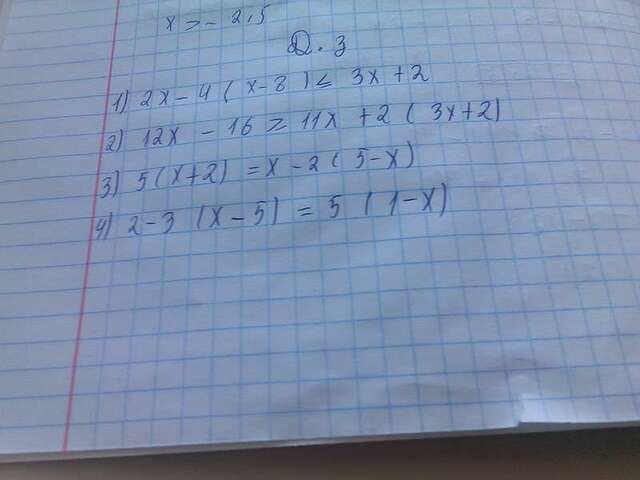 x > - 2,5
Д. з
1) 2x - 4 ( x - 8 ) ≤ 3x + 2
2) 12x - 16 ≥ 11x + 2 ( 3x + 2 )
3) 5 ( x + 2 ) = x - 2 ( 5 - x )
4) 2 - 3 ( x - 5 ) = 5 ( 1 - x )